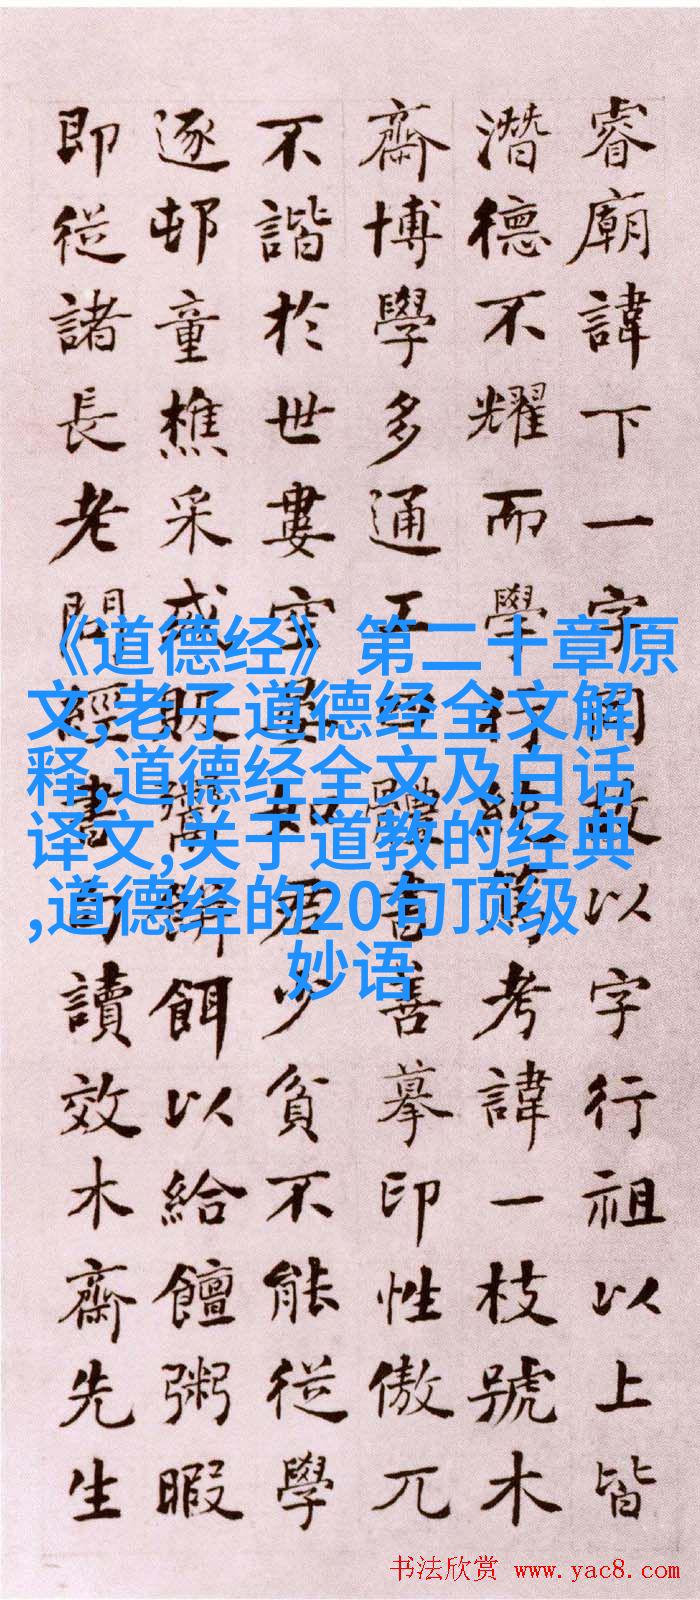 睿廟諱下一字同故以字行祖以上皆
潛德不耀而學行純篤考諱一枝號木
齋博學多通工體書善摹印性傲兀
不諧於世婁空晏如君少貧不能從學
逐邨童樵采販鬻餅餌以給饘粥暇
即從諸長老問經書句讀效木齋先生
《道德经》第二十章原
文,老子道德经全文解
释,道德经全文及白话
译文,关于道教的经典
,道德经的20句顶级
妙语
书法欣赏 www.yac8.com